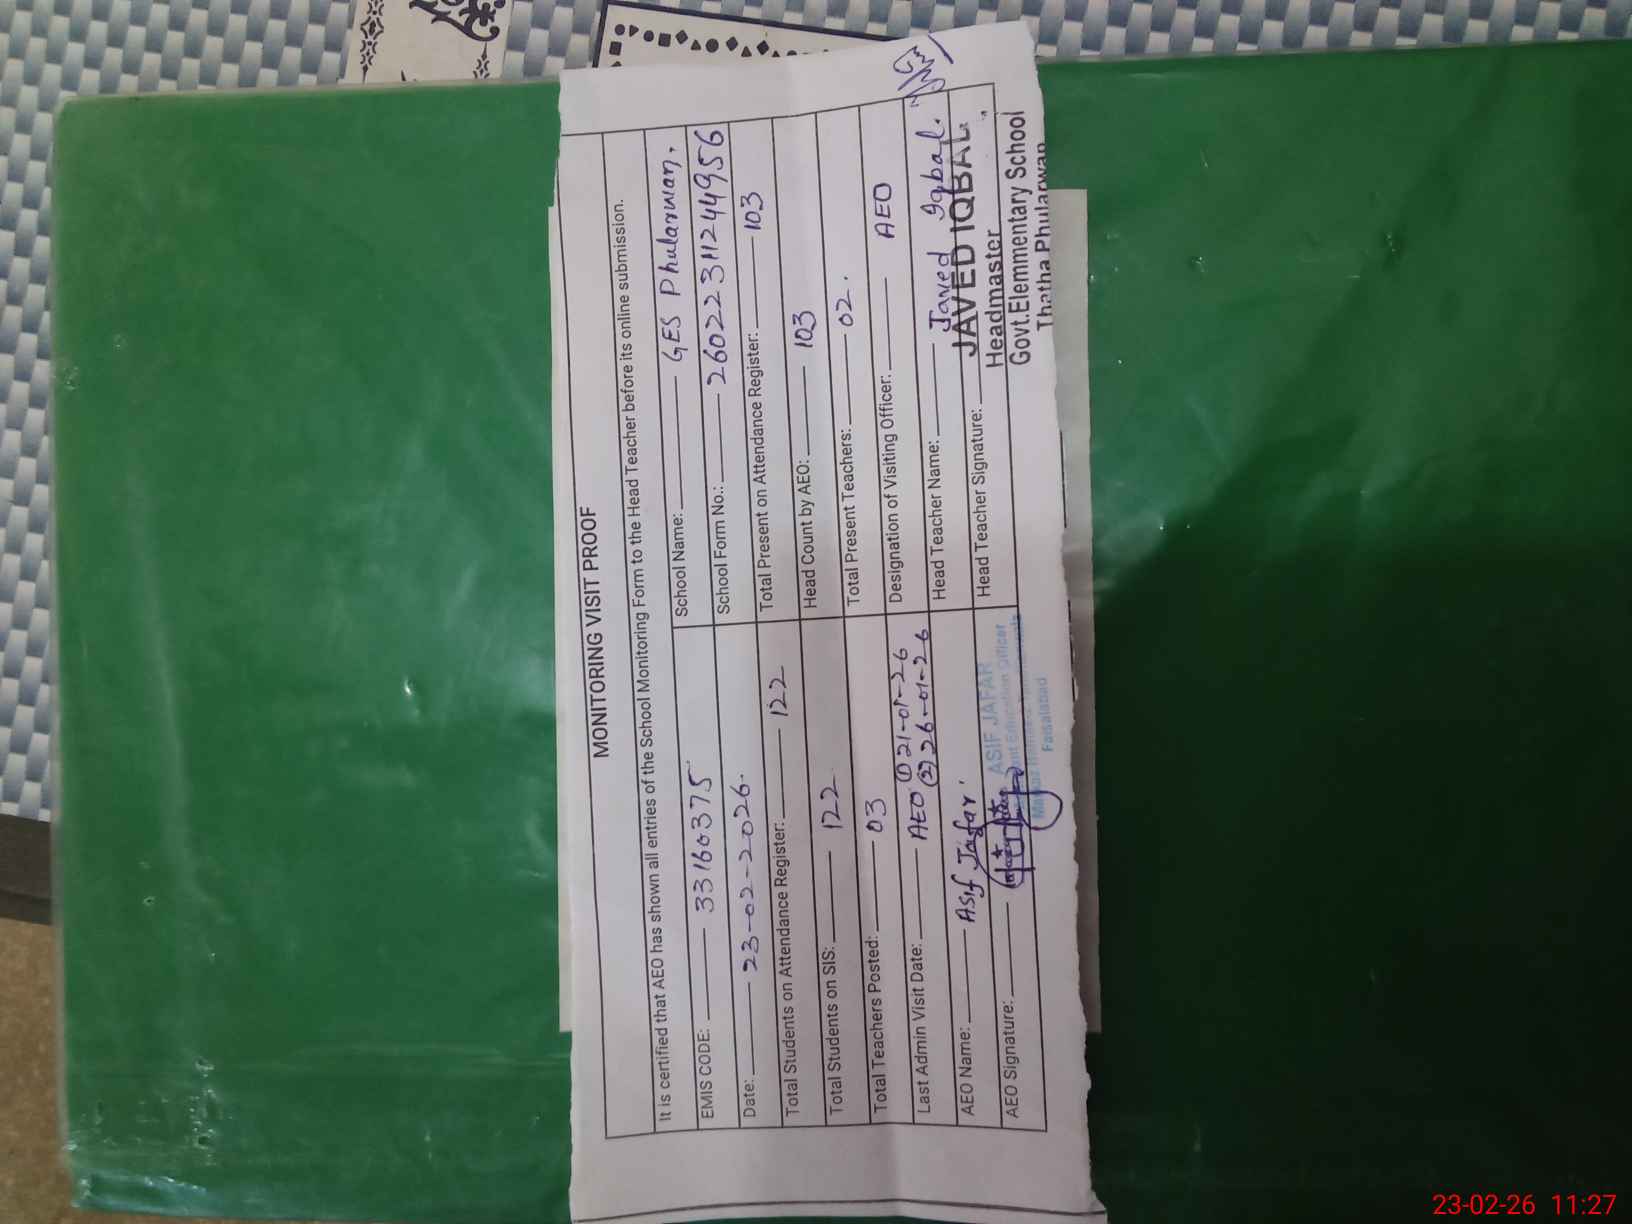 MONITORING VISIT PROOF
It is certified that AEO has shown all entries of the School Monitoring Form to the Head Teacher before its online submission.
EMIS CODE: 33160375
School Name: GES Phularwan.
Date: 23-02-2026.
School Form No.: 26022311244956
Total Students on Attendance Register: 122
Total Present on Attendance Register: 103
Total Students on SIS: 122
Head Count by AEO: 103
Total Teachers Posted: 03
Total Present Teachers: 02.
Last Admin Visit Date: AEO ① 21-01-26
② 26-01-26
Designation of Visiting Officer: AEO
AEO Name: Asif Jafar
Head Teacher Name: Javed Iqbal.
AEO Signature:
ASIF JAFAR
Education Officer
Faisalabad
Head Teacher Signature:
JAVED IQBAL
Headmaster
Govt.Elemmentary School
Thatha Phularwan
23-02-26 11:27